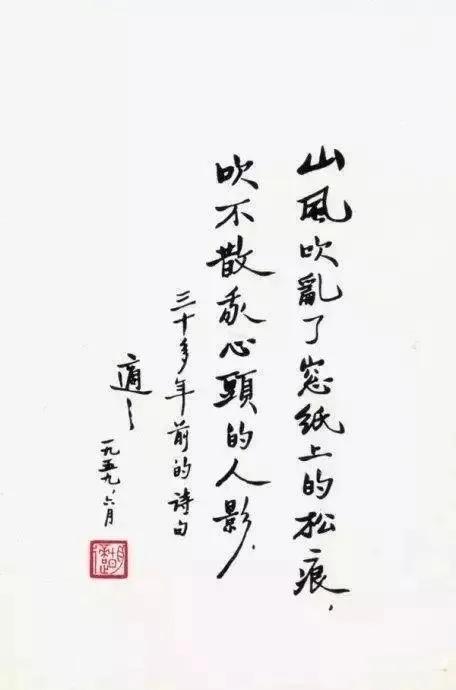 山風吹亂了窓紙上的松痕，
吹不散我心頭的人影．
三十多年前的詩句
適之
一九五九、六月
胡適